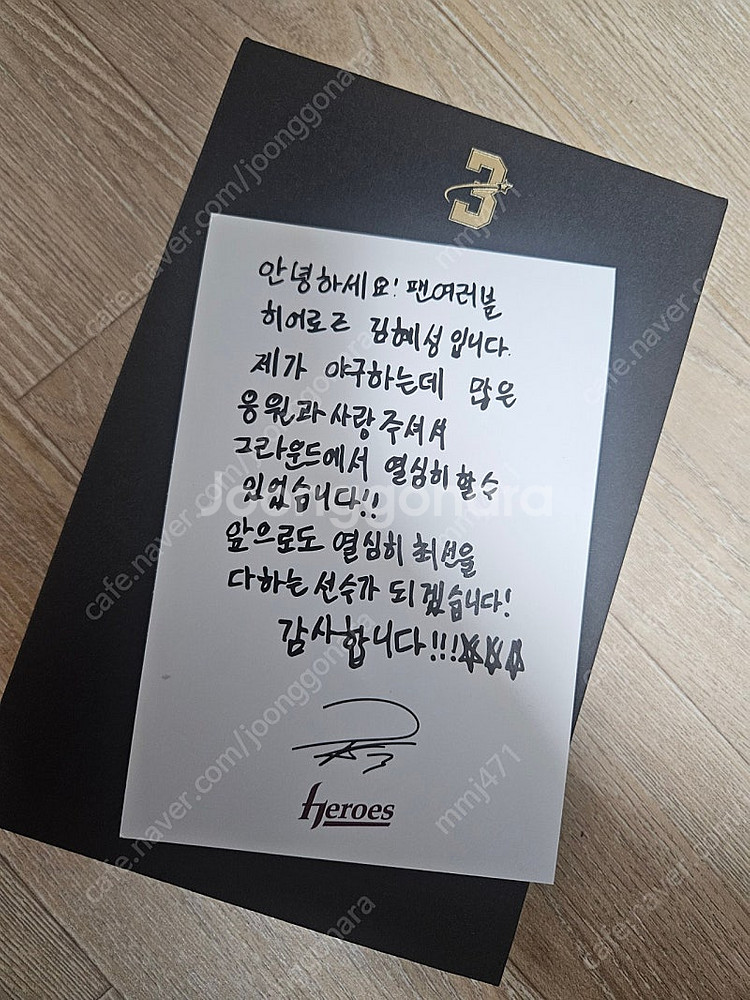 3
안녕하세요! 팬여러분
히어로즈 김혜성입니다.
제가 야구하는데 많은
응원과 사랑주셔서
그라운드에서 열심히 할 수
있었습니다!!
앞으로도 열심히 최선을
다하는 선수가 되겠습니다!
감사합니다!!!☆☆☆
heroes
Joonggonara
cafe.naver.com/joonggonara
mmj471